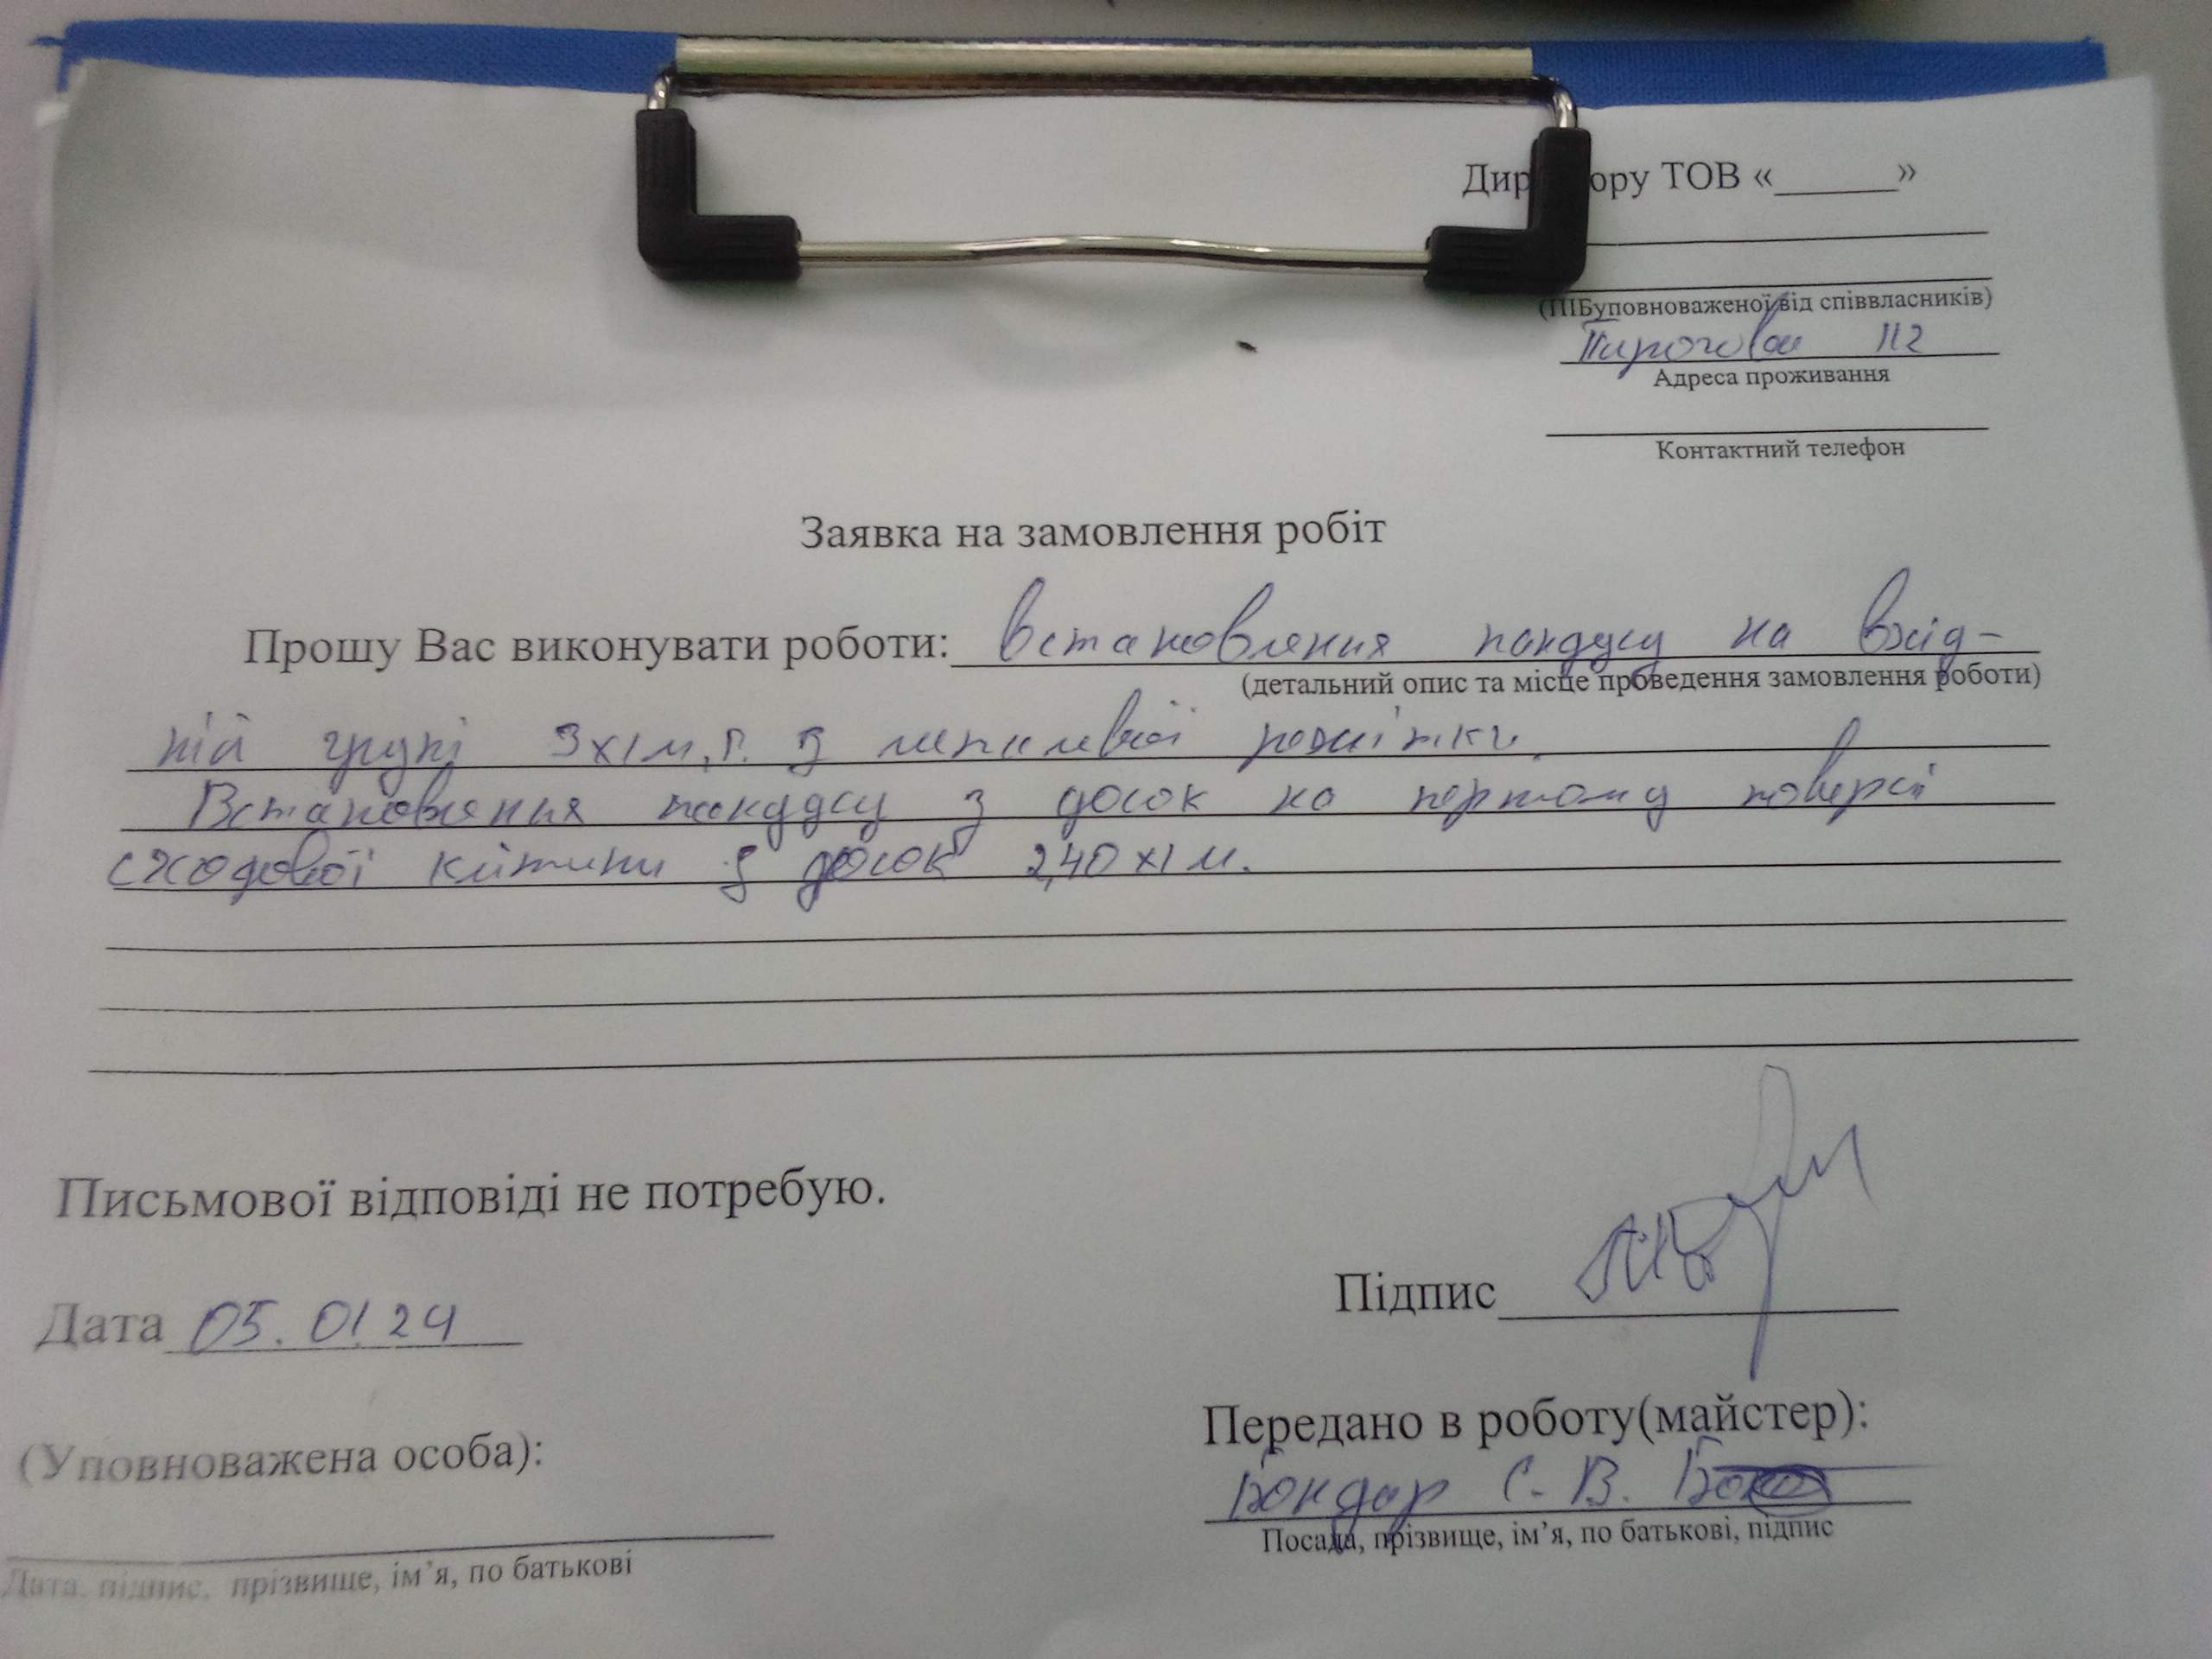 Директору ТОВ «______»
(ПІБуповноваженої від співвласників)
Пирогова 112
Адреса проживання
Контактний телефон
Заявка на замовлення робіт
Прошу Вас виконувати роботи: встановлення пандусу на вхід-
(детальний опис та місце проведення замовлення роботи)
ній групі 3х1м, з металевої
Встановлення пандусу з досок на першому поверсі
сходової клітини з досок 2,40х1м.
Письмової відповіді не потребую.
Підпис
Дата 05.01.24
Передано в роботу(майстер):
(Уповноважена особа):
Бондар С. В.
Посада, прізвище, ім’я, по батькові, підпис
Дата, підпис, прізвище, ім’я, по батькові